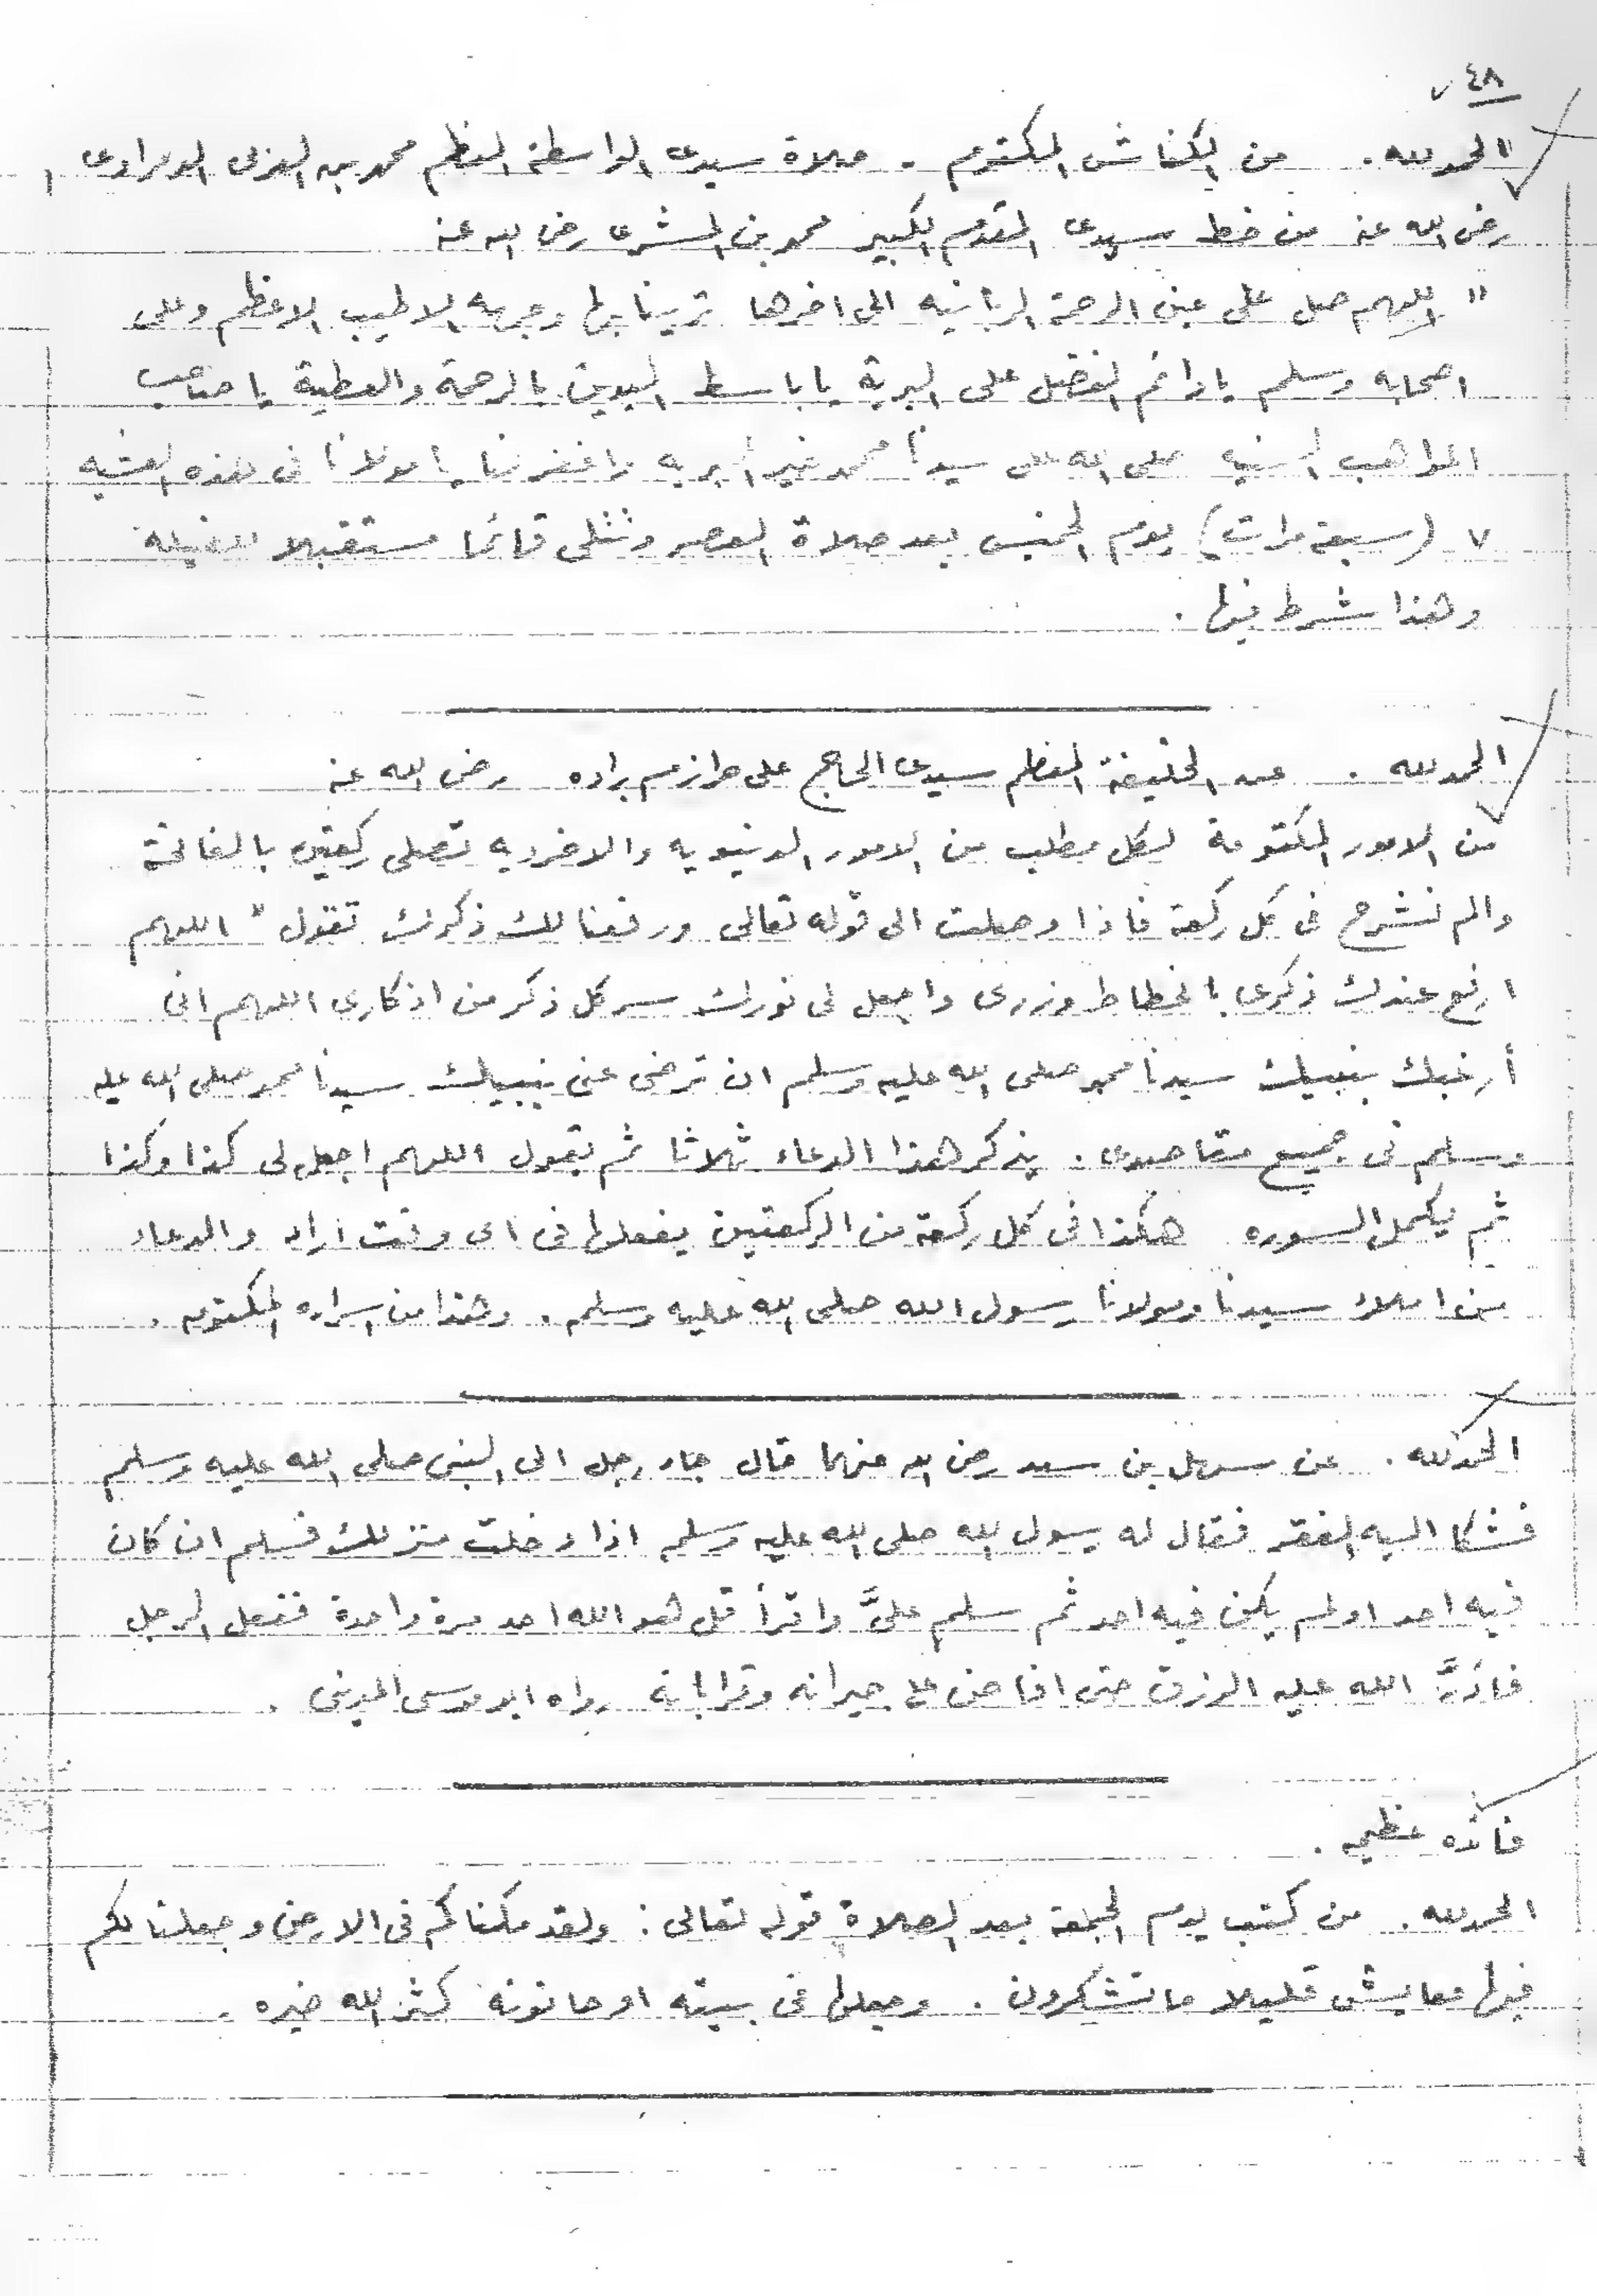 ٤٨
الحمد لله . من الكناش المكتوم . صلاة سيدى الواسطة المعظم محمد بن العربى
رضى الله عنه من خط سيدى المقدم الكبير محمد بن المشرى رضى الله عنه
" اللهم صل على عين الرحمة الربانيه الى اخرها وجربه الاطيب الاعظم وعلى
اصحابه وسلم يا دائم الفضل على البرية يا باسط اليدين بالرحمة والعطية يا صاحب
المواهب السنيه صلى الله على سيدنا محمد خير البريه واغفر لنا يا مولانا فى هذه العشيه
٧ (سبعة مرات) يوم الخميس بعد صلاة العصر وتتلى قائما مستقبلا للقبله
وهذا شرط فيها .
الحمد لله . عن الخليفة المعظم سيدى الحاج على حرازم براده رضى الله عنه
من الامور المكتومة لكل مطلب من الامور الدنيويه والاخرويه تصلى ركعتين بالفاتحة
والم نشرح فى كل ركعة فاذا وصلت الى قوله تعالى ورفعنا لك ذكرك تقول " اللهم
ارفع عندك ذكرى بانحطاط وزرى واجعل لى نورك سر كل ذكر من اذكارى اللهم انى
أرغبك بنبيك سيدنا محمد صلى الله عليه وسلم ان ترضى عنى نبيك سيدنا محمد صلى الله عليه
وسلم فى جميع مقاصدى . يذكر هذا الدعاء ثلاثا ثم يقول اللهم اجعل لى كذا وكذا
ثم يكمل السوره هكذا فى كل ركعة من الركعتين يفعلها فى اى وقت اراد والدعاء
من املاء سيدنا ومولانا رسول الله صلى الله عليه وسلم . وهذا من اسراره المكتومه .
الحمد لله . عن سهل بن سعد رضى الله عنهما قال جاء رجل الى النبى صلى الله عليه وسلم
فشكا اليه الفقر فقال له رسول الله صلى الله عليه وسلم اذا دخلت منزلك فسلم ان كان
فيه احد او لم يكن فيه احد ثم سلم علىَّ واقرأ قل هو الله احد مرة واحدة ففعل الرجل
فأدرَّ الله عليه الرزق حتى افاض على جيرانه وقراباته رواه ابو موسى المدينى .
فائده عظيمه .
الحمد لله . من كتب يوم الجمعة بعد الصلاة قوله تعالى : ولقد مكناكم فى الارض وجعلنا لكم
فيها معايش قليلا ما تشكرون . وجعلها فى بيته او حانوته كثر الله خيره .